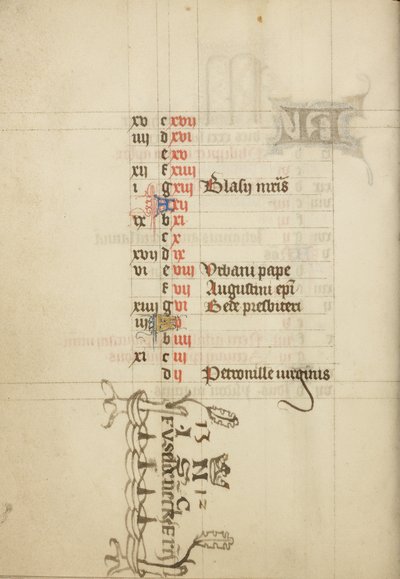 xv c xvij
iiij d xvi
e xv
xij f xiiij
i g xiij Blasij mr̄is
A xij
ix b xi
c x
xvij d ix
vi e viij Vrbani pape
f vij Augustini ep̄i
xiiij g vi Bede presbiteri
iij A
b iiij
xi c iij
d ij Petronille virginis
13
N
12